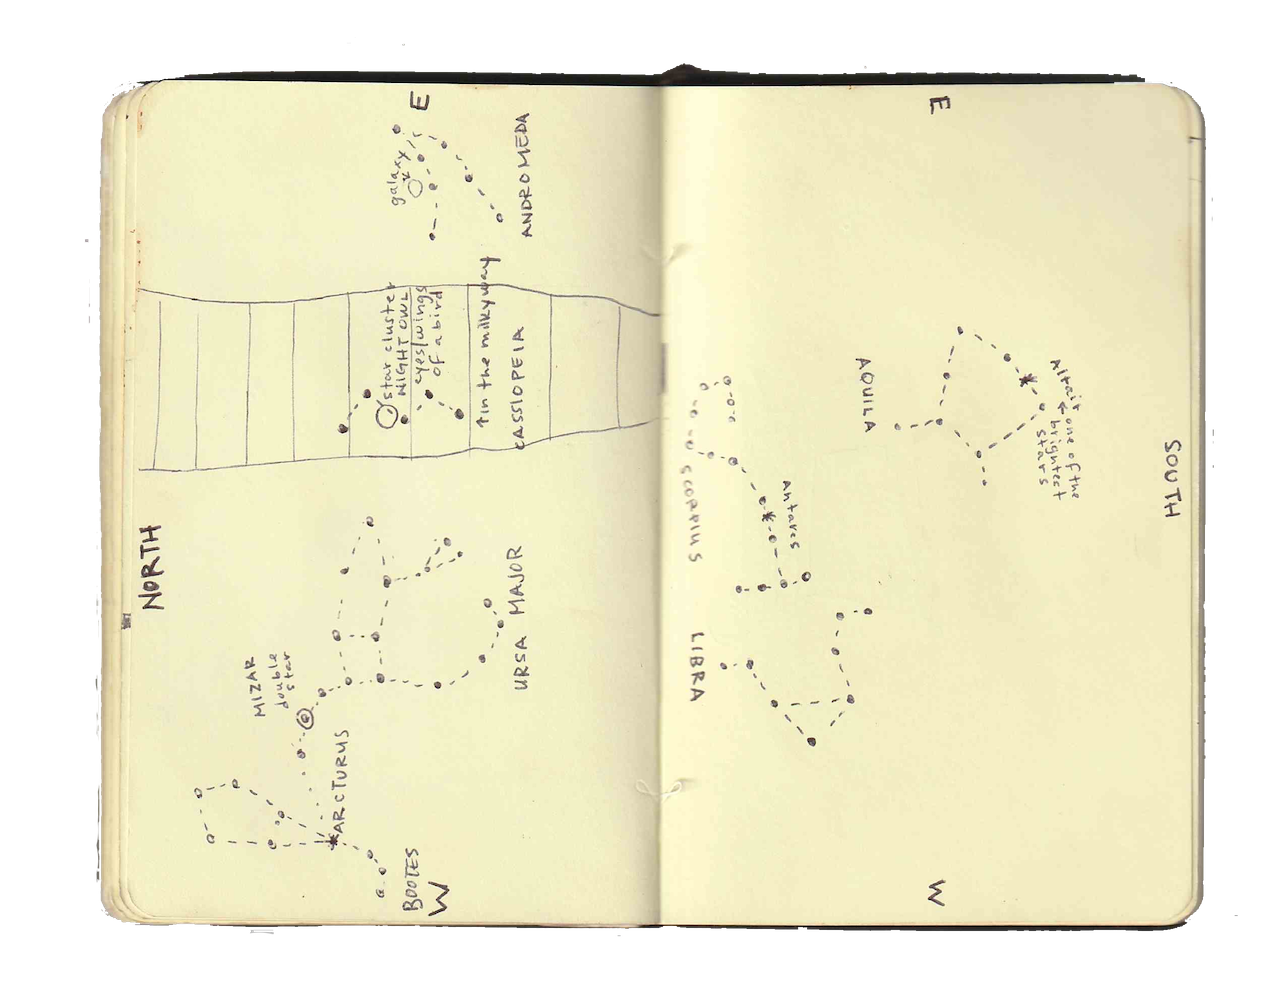 E
galaxy
ANDROMEDA
star cluster
NIGHT OWL
eyes/wings
of a bird
↑in the milkyway
CASSIOPEIA
NORTH
URSA MAJOR
MIZAR
double
star
ARCTURUS
BOOTES
W
E
AQUILA
Altair
← one of the
brightest
stars
SOUTH
SCORPIUS
Antares
LIBRA
W